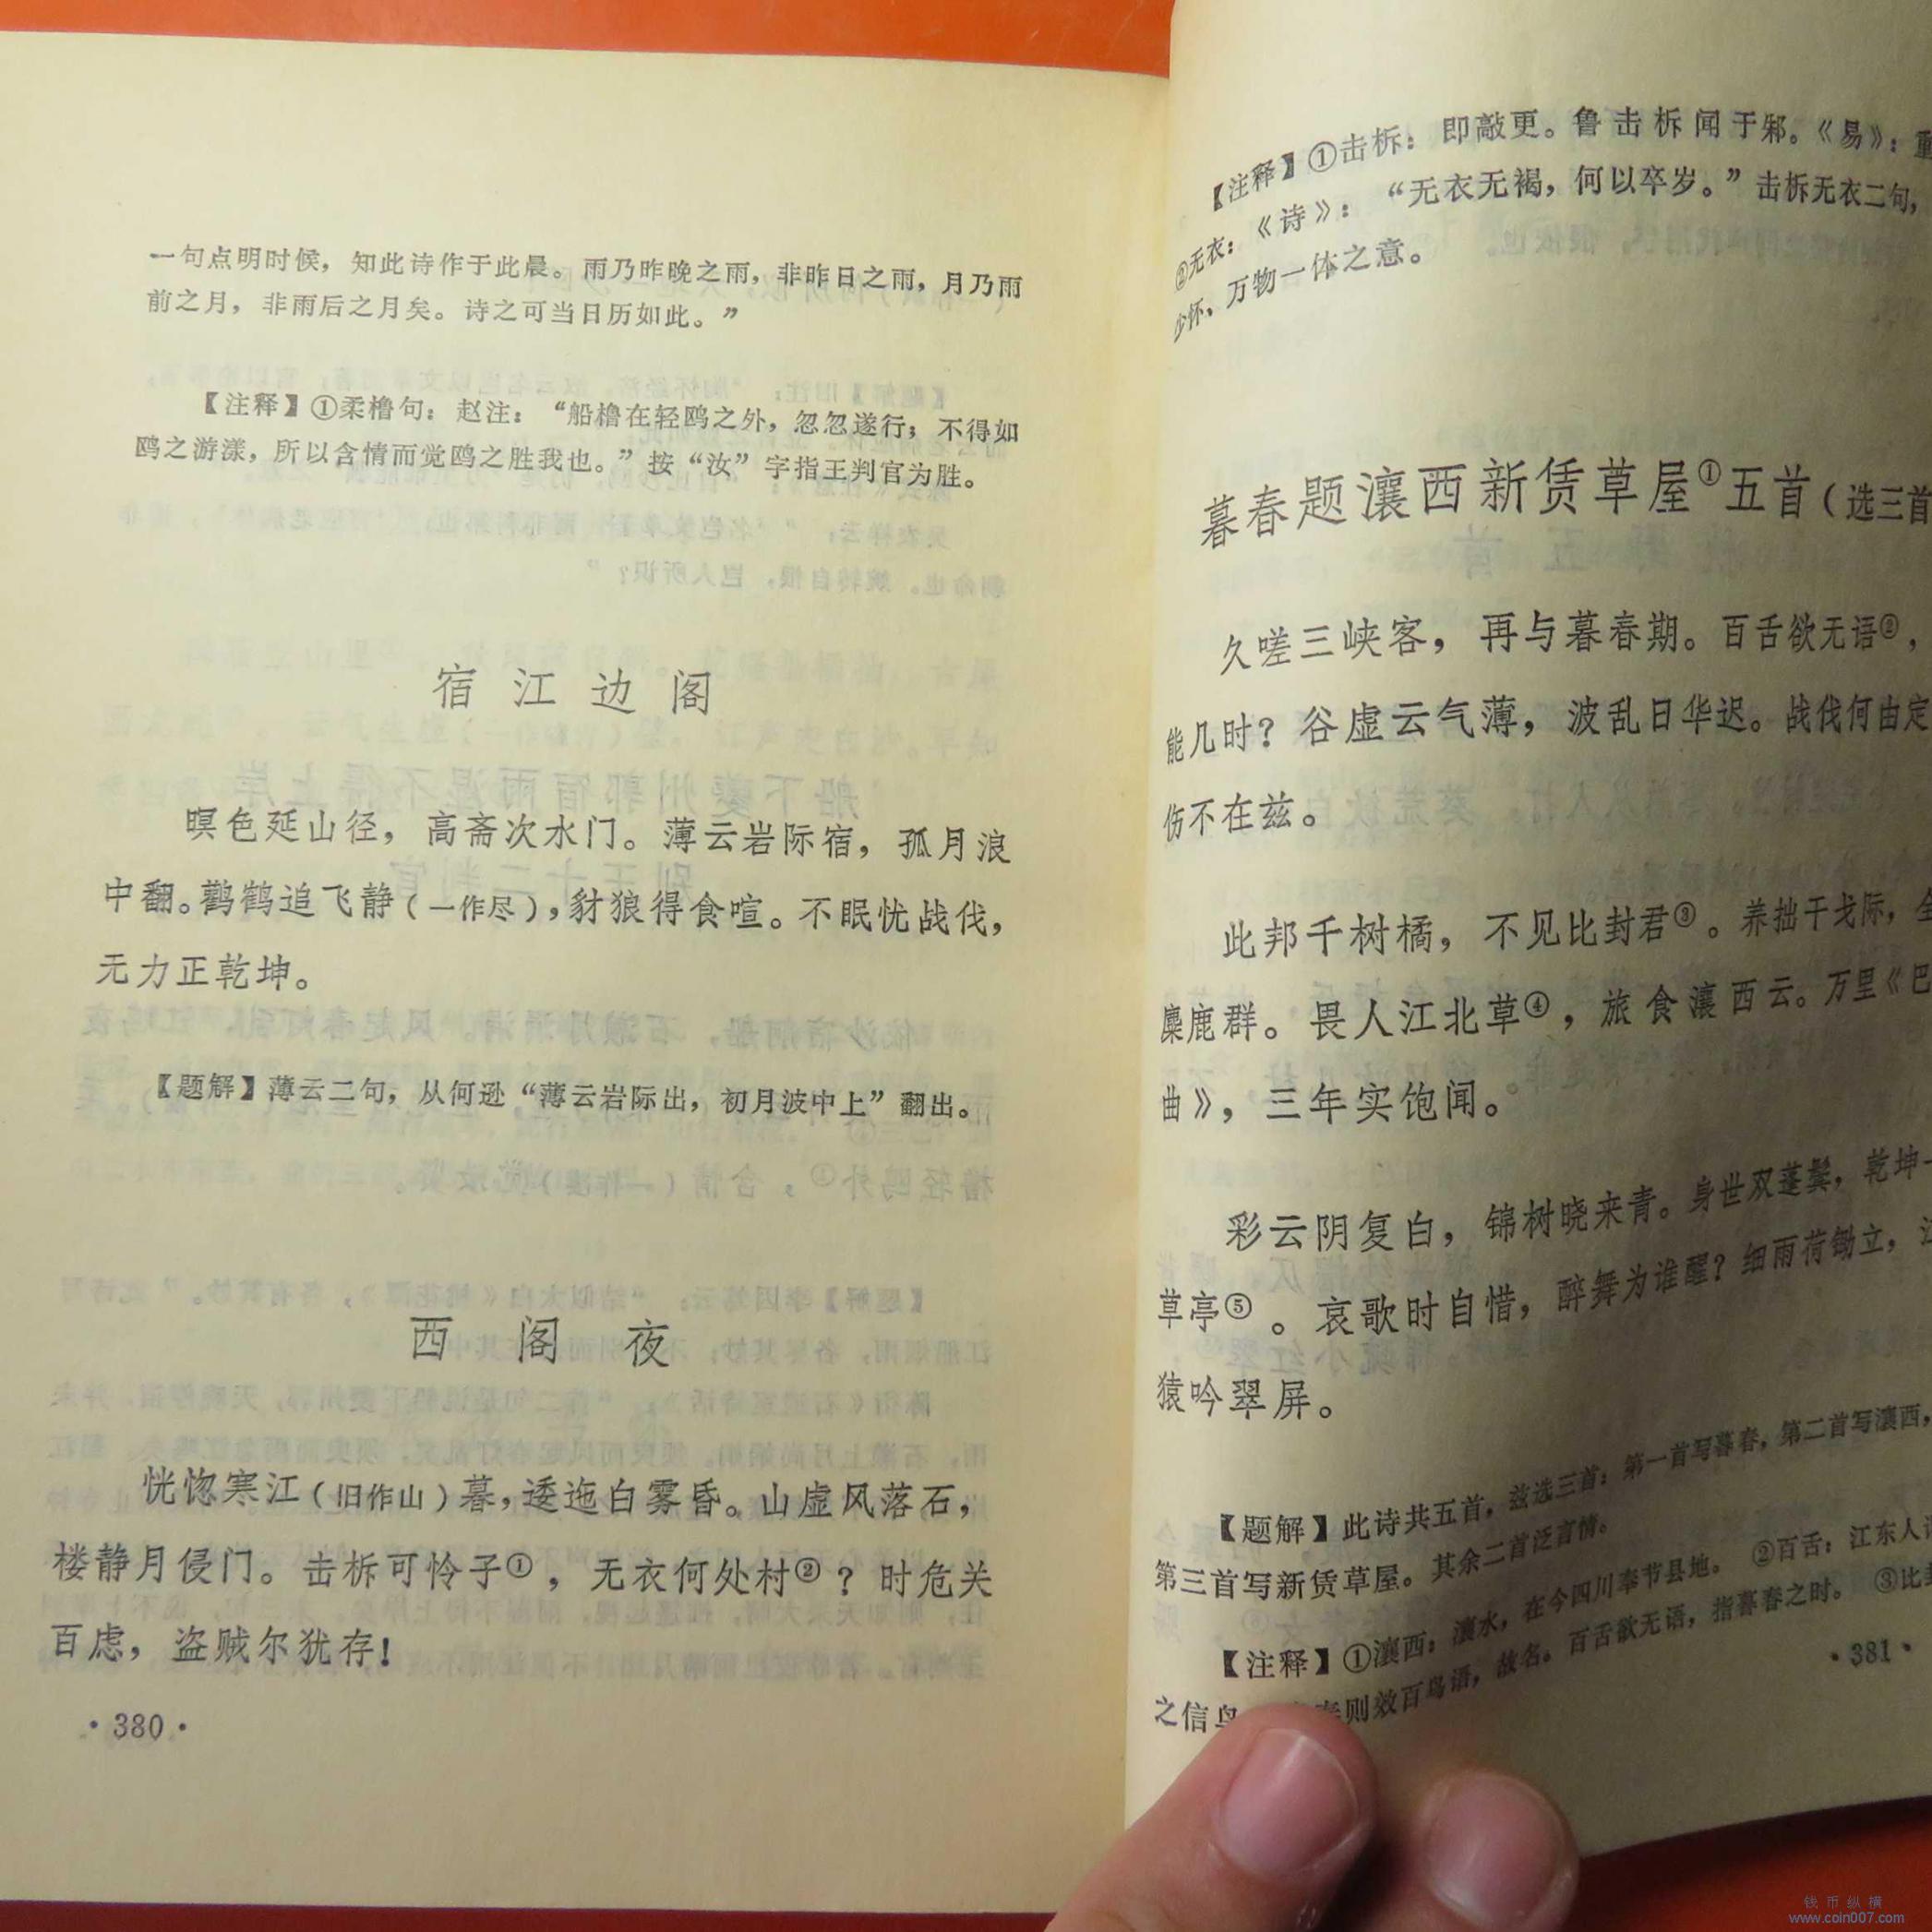 一句点明时候，知此诗作于此晨。雨乃昨晚之雨，非昨日之雨，月乃雨
前之月，非雨后之月矣。诗之可当日历如此。”
【注释】①柔橹句：赵注：“船橹在轻鸥之外，忽忽遂行；不得如
鸥之游漾，所以含情而觉鸥之胜我也。”按“汝”字指王判官为胜。
宿江边阁
暝色延山径，高斋次水门。薄云岩际宿，孤月浪
中翻。鹳鹤追飞静（一作尽），豺狼得食喧。不眠忧战伐，
无力正乾坤。
【题解】薄云二句，从何逊“薄云岩际出，初月波中上”翻出。
西阁夜
恍惚寒江（旧作山）暮，逶迤白雾昏。山虚风落石，
楼静月侵门。击柝可怜子①，无衣何处村②？时危关
百虑，盗贼尔犹存！
·380·
【注释】①击柝：即敲更。鲁击柝闻于邾。《易》：重
②无衣：《诗》：“无衣无褐，何以卒岁。”击柝无衣二句，
少怀，万物一体之意。
暮春题瀼西新赁草屋①五首（选三首
久嗟三峡客，再与暮春期。百舌欲无语②，
能几时？谷虚云气薄，波乱日华迟。战伐何由定
伤不在兹。
此邦千树橘，不见比封君③。养拙干戈际，全
麋鹿群。畏人江北草④，旅食瀼西云。万里《巴
曲》，三年实饱闻。
彩云阴复白，锦树晓来青。身世双蓬鬓，乾坤一
草亭⑤。哀歌时自惜，醉舞为谁醒？细雨荷锄立，江
猿吟翠屏。
【题解】此诗共五首，兹选三首：第一首写暮春，第二首写瀼西，
第三首写新赁草屋。其余二首泛言情。
【注释】①瀼西：瀼水，在今四川奉节县地。②百舌：江东人谓
之信鸟 则效百鸟语，故名。百舌欲无语，指暮春之时。③比封
·381·
钱币纵横
www.coin007.com